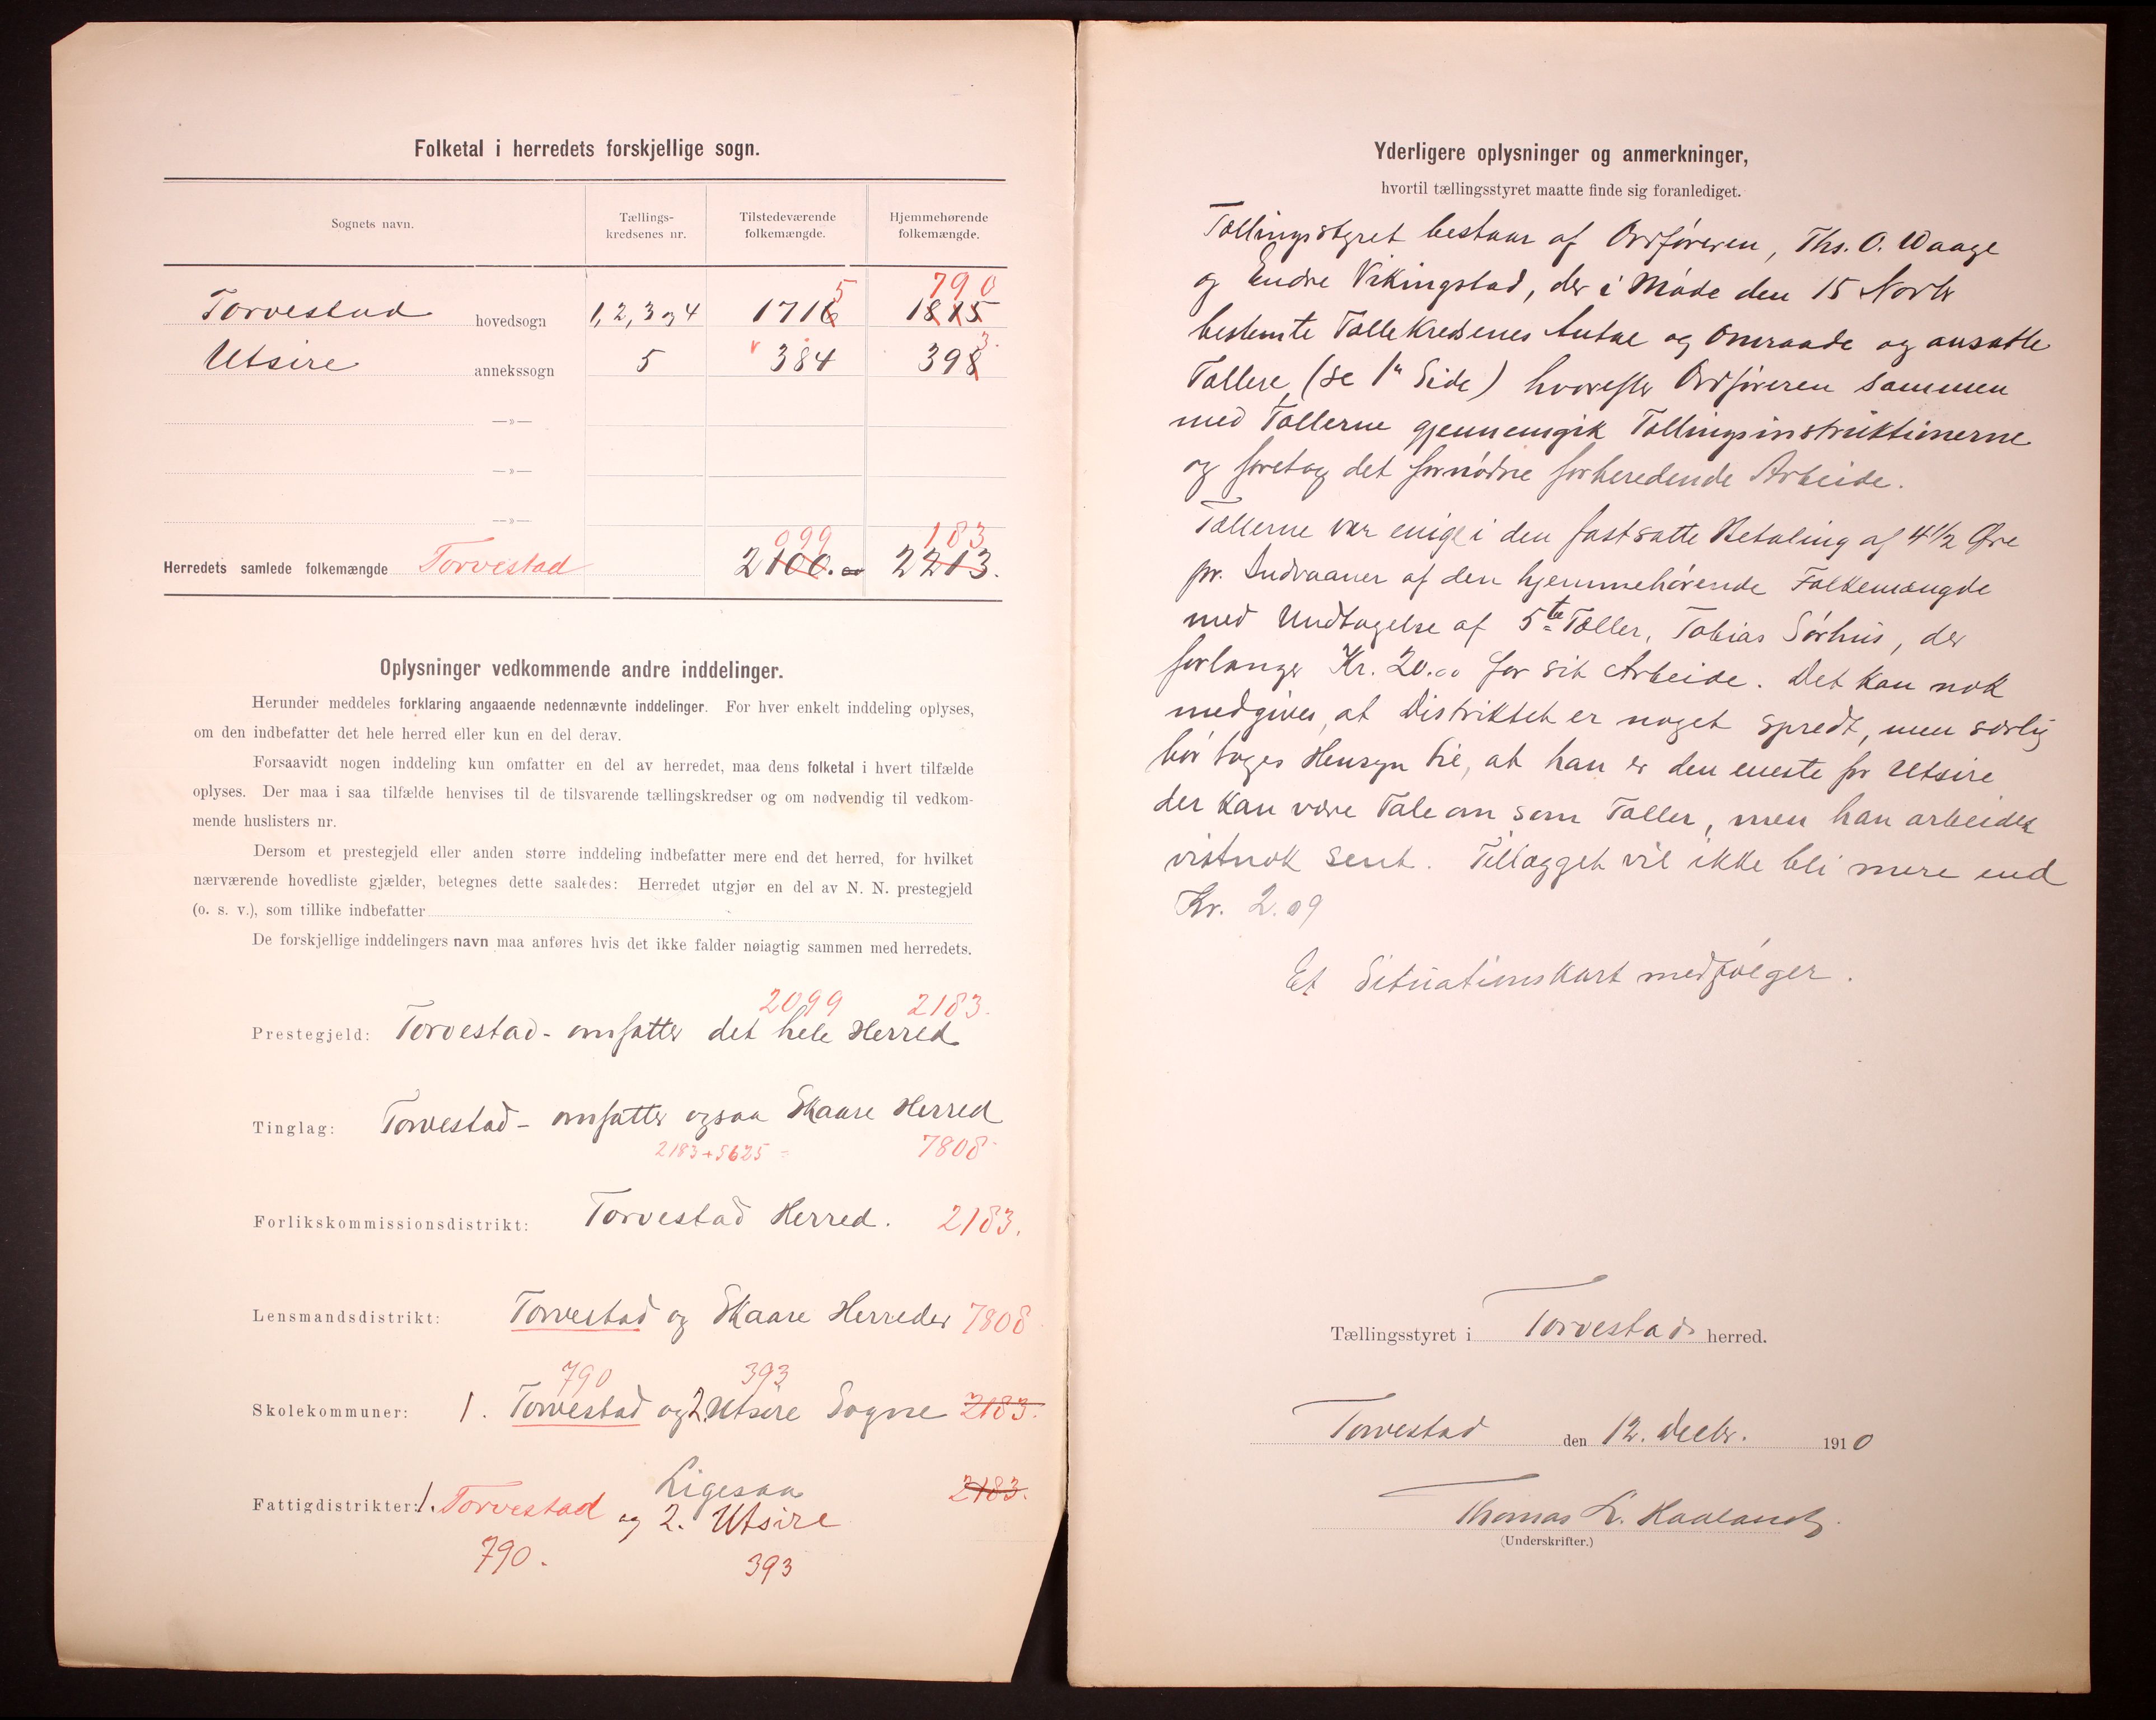 Folketal i herredets forskjellige sogn.
Sognets navn.
Tællings-
kredsenes nr.
Tilstedeværende
folkemængde.
Hjemmehørende
folkemængde.
5 790
Torvestad hovedsogn 1, 2, 3 og 4 1716 1815
3
Utsire annekssogn 5 v 384 398
—»—
—»—
—»—
099 183
Herredets samlede folkemængde Torvestad 2100. 2213.
Oplysninger vedkommende andre inddelinger.
Herunder meddeles forklaring angaaende nedennævnte inddelinger. For hver enkelt inddeling oplyses,
om den indbefatter det hele herred eller kun en del derav.
Forsaavidt nogen inddeling kun omfatter en del av herredet, maa dens folketal i hvert tilfælde
oplyses. Der maa i saa tilfælde henvises til de tilsvarende tællingskredser og om nødvendig til vedkom-
mende huslisters nr.
Dersom et prestegjeld eller anden større inddeling indbefatter mere end det herred, for hvilket
nærværende hovedliste gjælder, betegnes dette saaledes: Herredet utgjør en del av N. N. prestegjeld
(o. s. v.), som tillike indbefatter
De forskjellige inddelingers navn maa anføres hvis det ikke falder nøiagtig sammen med herredets.
2099 2183.
Prestegjeld: Torvestad - omfatter det hele Herred
Tinglag: Torvestad - omfatter ogsaa Skaare Herred
2183+5625 = 7808
Forlikskommissionsdistrikt: Torvestad Herred. 2183.
Lensmandsdistrikt: Torvestad og Skaare Herreder 7808
790 393
Skolekommuner: 1. Torvestad og 2. Utsire Sogne 2183.
Ligesaa 2183.
Fattigdistrikter: 1. Torvestad og 2. Utsire
790. 393
Yderligere oplysninger og anmerkninger,
hvortil tællingsstyret maatte finde sig foranlediget.
Tællingsstyret bestaar af Ordføreren, Ths. O. Waage
og Endre Vikingstad, der i Møde den 15 Novbr
bestemte Tællekredsenes Antal og Omraade og ansatte
Tællere, (se 1ste Side) hvorefter Ordføreren sammen
med Tællerne gjennemgik Tællingsinstruktionerne
og foretog det fornødne forberedende Arbeide.
Tællerne var enige i den fastsatte Betaling af 4½ Øre
pr. Indvaaner af den hjemmehørende Folkemængde
med Undtagelse af 5te Tæller, Tobias Sørhus, der
forlanger Kr. 20.00 for sit Arbeide. Det kan nok
medgives, at Distriktet er noget spredt, men særlig
bør tages Hensyn til, at han er den eneste for Utsire
der kan være Tale om som Tæller, men han arbeider
vistnok sent. Tillægget vil ikke bli mere end
Kr. 2.09
Et Situationskart medfølger.
Tællingsstyret i Torvestad herred.
Torvestad den 12. Decbr. 1910
Thomas L. Haaland
(Underskrifter.)